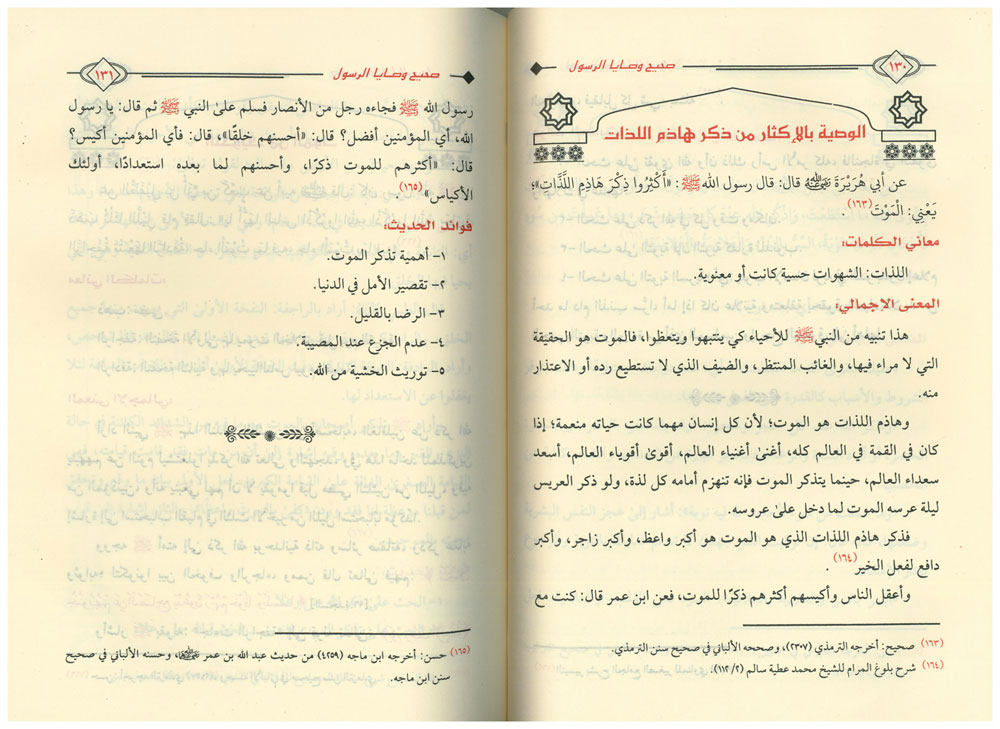 ١٣٠
صحيح وصايا الرسول
الوصية بالإكثار من ذكر هاذم اللذات
عن أبي هُرَيْرَةَ رضي الله عنه قال: قال رسول الله ﷺ: «أَكْثِرُوا ذِكْرَ هَاذِمِ اللَّذَّاتِ»؛
يَعْنِي: الْمَوْتَ(١٦٣).
معاني الكلمات:
اللذات: الشهوات حسية كانت أو معنوية.
المعنى الإجمالي:
هذا تنبيه من النبي ﷺ للأحياء كي ينتبهوا ويتعظوا، فالموت هو الحقيقة
التي لا مراء فيها، والغائب المنتظر، والضيف الذي لا تستطيع رده أو الاعتذار
منه.
وهاذم اللذات هو الموت؛ لأن كل إنسان مهما كانت حياته منعمة؛ إذا
كان في القمة في العالم كله، أغنى أغنياء العالم، أقوى أقوياء العالم، أسعد
سعداء العالم، حينما يتذكر الموت فإنه تنهزم أمامه كل لذة، ولو ذكر العريس
ليلة عرسه الموت لما دخل على عروسه.
فذكر هاذم اللذات الذي هو الموت هو أكبر واعظ، وأكبر زاجر، وأكبر
دافع لفعل الخير(١٦٤).
وأعقل الناس وأكيسهم أكثرهم ذكرًا للموت، فعن ابن عمر قال: كنت مع
(١٦٣) صحيح: أخرجه الترمذي (٢٣٠٧)، وصححه الألباني في صحيح سنن الترمذي.
(١٦٤) شرح بلوغ المرام للشيخ محمد عطية سالم (٢/ ١١٢).
صحيح وصايا الرسول
١٣١
رسول الله ﷺ فجاءه رجل من الأنصار فسلم على النبي ﷺ ثم قال: يا رسول
الله، أي المؤمنين أفضل؟ قال: «أحسنهم خلقًا»، قال: فأي المؤمنين أكيس؟
قال: «أكثرهم للموت ذكرًا، وأحسنهم لما بعده استعدادًا، أولئك
الأكياس»(١٦٥).
فوائد الحديث:
١- أهمية تذكر الموت.
٢- تقصير الأمل في الدنيا.
٣- الرضا بالقليل.
٤- عدم الجزع عند المصيبة.
٥- توريث الخشية من الله.
(١٦٥) حسن: أخرجه ابن ماجه (٤٢٥٩) من حديث عبد الله بن عمر رضي الله عنهما، وحسنه الألباني في صحيح
سنن ابن ماجه.